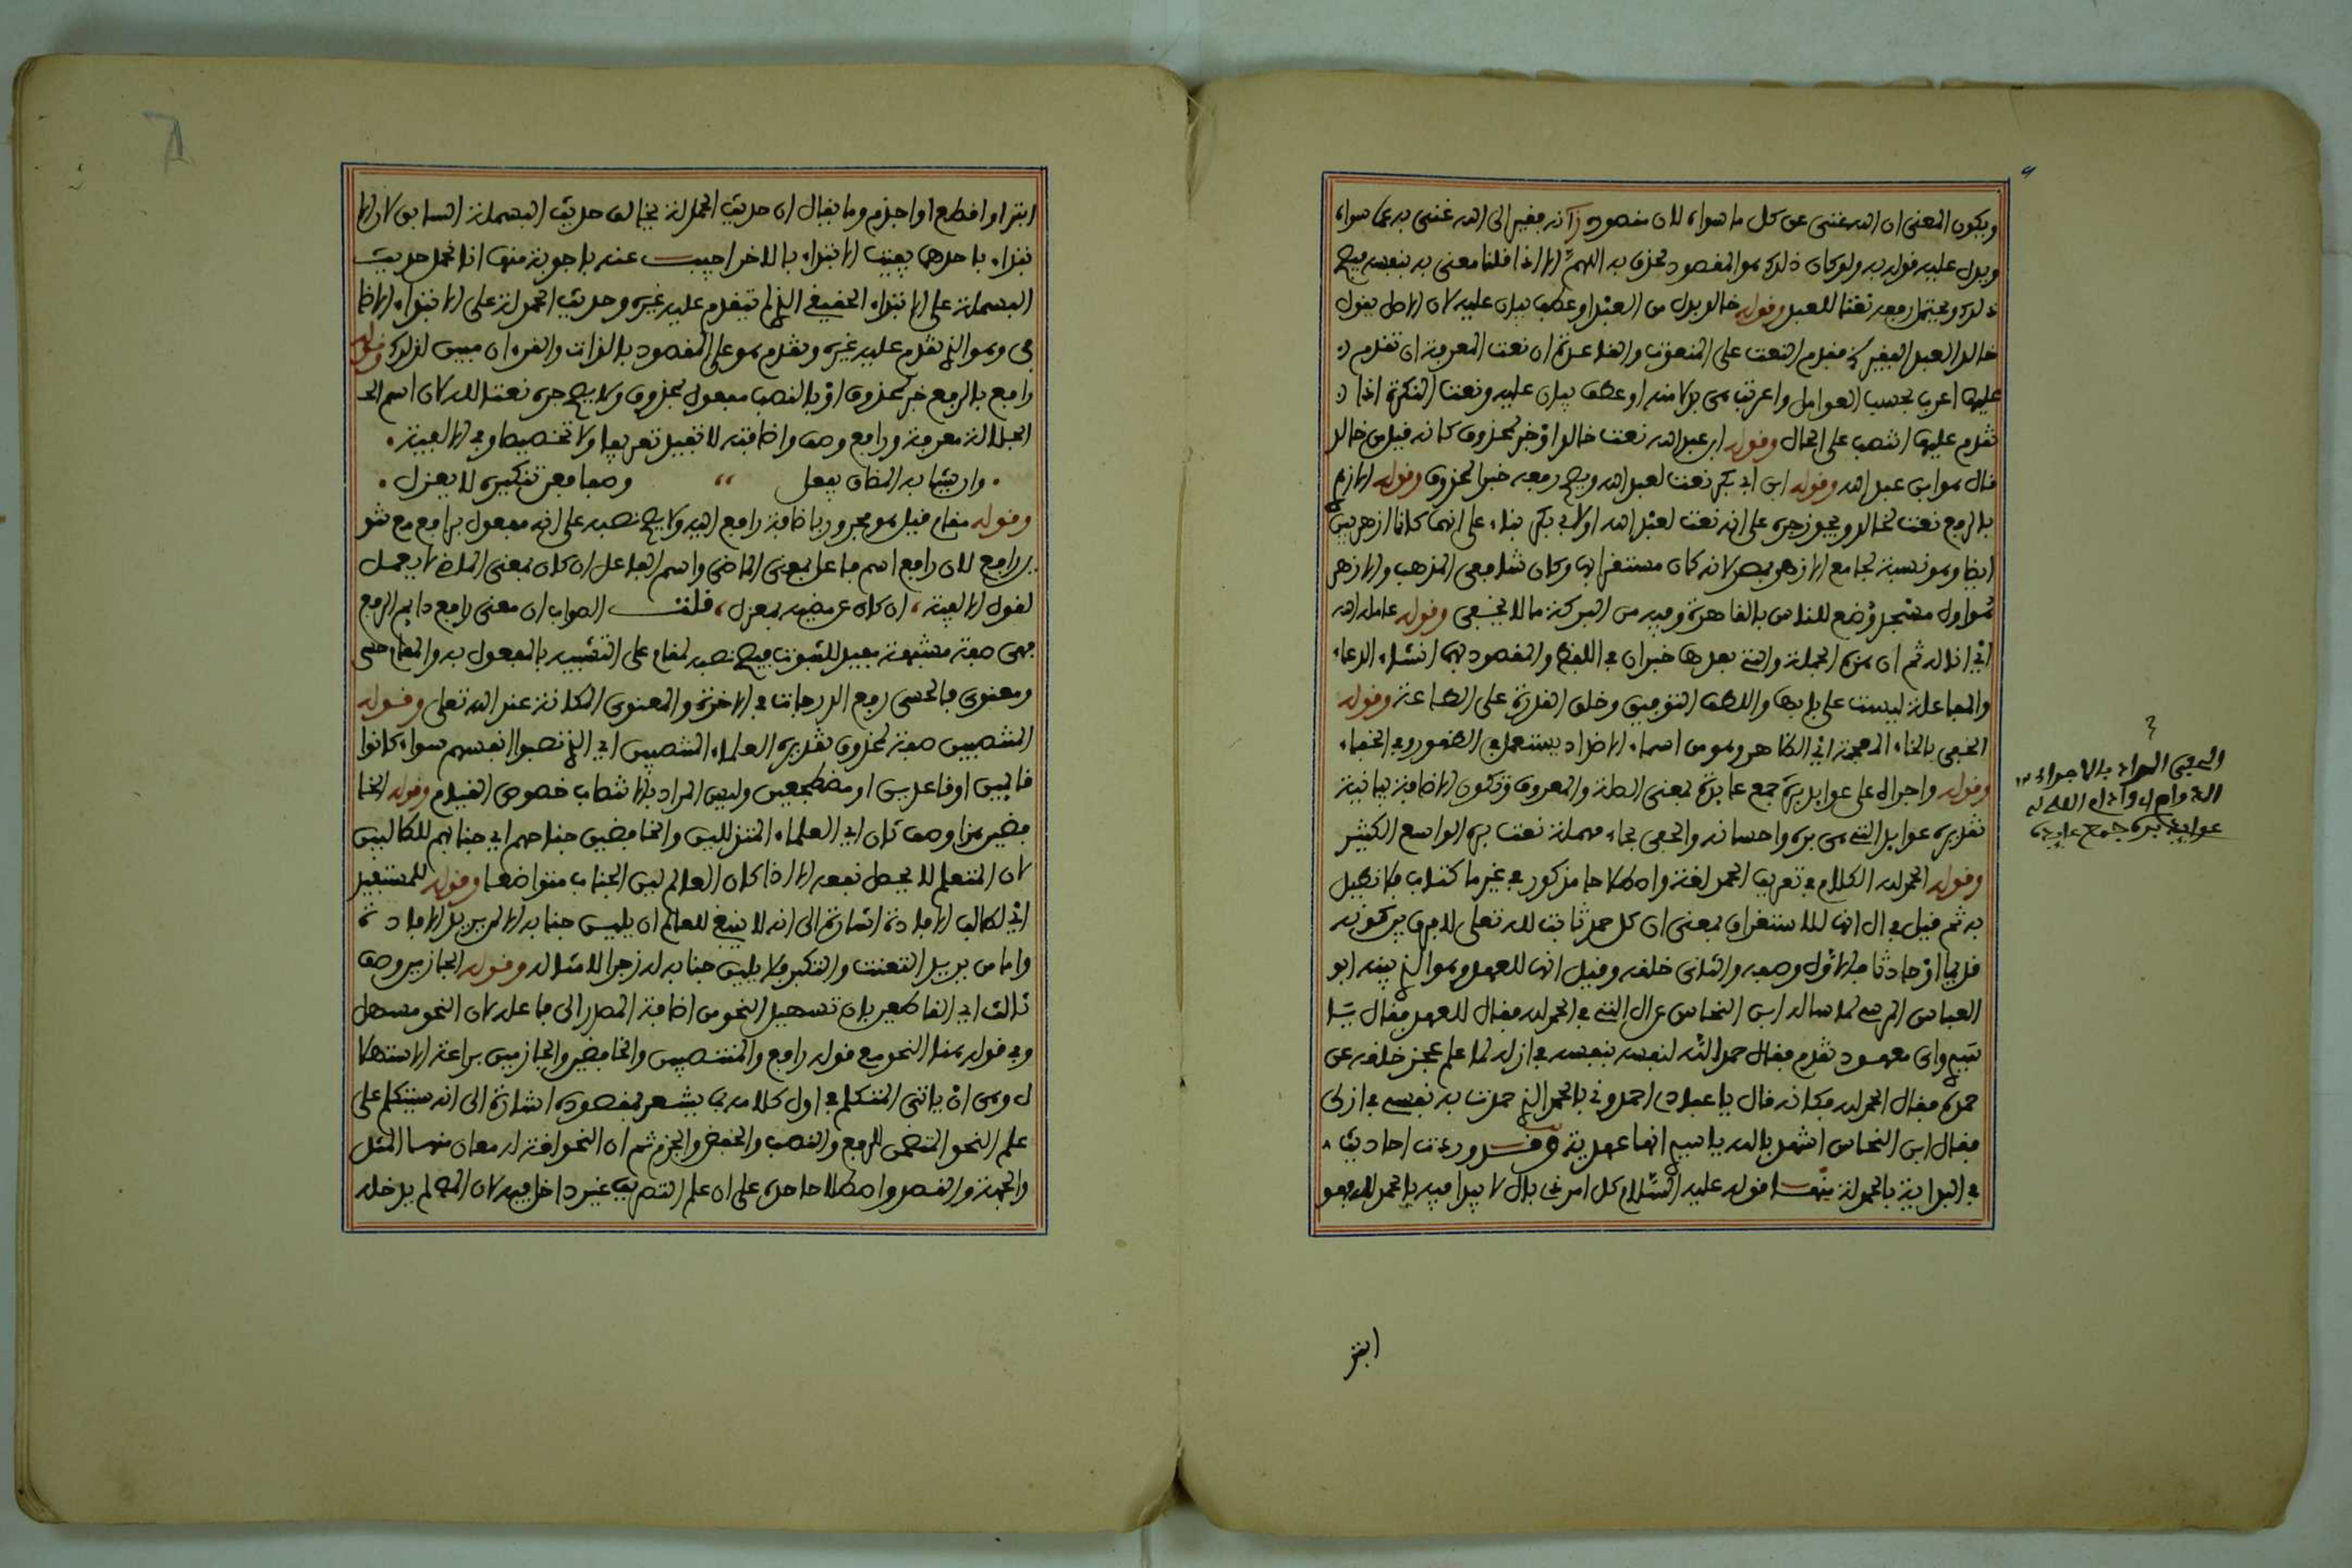 ويكون المعنى ان الله غنى عن كل ما سواه لان مقصوده انه فقير الى الله غنى به عما سواه
ويدل عليه قوله به ولو كان ذلك هو المقصود لحذف به اللهم الا اذا قلنا معنى به بنفسه فيصح
ذلك ويحتمل رفعه نعتا للعبد وقوله خالد بدل من العبد او عطف بيان عليه لان الاصل يقول
خالد العبد الفقير فقدم النعت على المنعوت والقاعدة ان نعت المعرفة ان تقدم
عليها اعرب بحسب العوامل واعربت هى بدلا منه او عطف بيان عليه ونعت النكرة اذا
تقدم عليها انتصب على الحال وقوله ابن عبد الله نعت خالد او خبر لمحذوف كانه قيل من خالد
قال هو ابن عبد الله وقوله ابن ابي بكر نعت لعبد الله ويصح رفعه خبر المحذوف وقوله الازهري
بالرفع نعت لخالد ويجوز جره على انه نعت لعبد الله او لابي بكر بناء على انهما كانا ازهريين
ايضا وهو نسبة لجامع الازهر بمصر لانه كان مستقرا بها وكان شافعي المذهب والازهر
هو اول مسجد وضع للناس بالقاهرة وفيه من البركة ما لا يخفى وقوله عامله الله
اي انا له ثم ان هذه الجملة والتي بعدها خبران في اللفظ والمقصود بهما انشاء الدعاء
والمفاعلة ليست على بابها واللطف التوفيق وخلق القدرة على الطاعة وقوله
الخفي بالخاء المعجمة اي الظاهر وهو من اسماء الاضداد يستعمل في الظهور وفي الخفاء
وقوله واجراه على عوايد بره جمع عايدة بمعنى الصلة والمعروف وتكون الاضافة بيانية
تقديره عوايد التي هي بره واحسانه والحفي بحاء مهملة نعت بره الواسع الكثير
وقوله الحمد لله الكلام في تعريف الحمد لغة واصطلاحا مذكور في غير ما كتاب فلا نطيل
به ثم قيل في ال انها للاستغراق بمعنى ان كل حمد ثابت لله تعلى لا فرق بين كونه
قديما او حادثا فالاول وصفه والثاني خلقه وقيل انها للعهد وهو الذي بينه ابو
العباس المرسي لما سأله ابن النحاس عن ال التي في الحمد لله فقال للعهد فقال يا
سيدي واى معهود تقدم فقال حمد الله لنفسه بنفسه في ازله لما علم عجز خلقه عن
حمده فقال الحمد لله فكانه قال يا عبادي احمدوني بالحمد الذي حمدت به نفسي في ازلى
فقال ابن النحاس اشهد بالله يا سيدي انها عهدية وقد وردت احاديث
في البداية بالحمدلة منها قوله عليه السلام كل امر ذي بال لا يبدا فيه بالحمد لله فهو
ابتر
ابتر او اقطع او اجذم وما يقال ان حديث الحمدلة يخالف حديث البسملة السابق لان الا
بتداء باحدهما يفيت الابتداء بالاخر اجيب عنه باجوبة منها انا نحمل حديث
البسملة على الابتداء الحقيقي الذي لم يتقدم عليه غيره وحديث الحمدلة على الابتداء الاضا
في وهو الذي تقدم عليه غيره وتقدم هو على المقصود بالذات والقرءان مبين لذلك وقوله
رافع بالرفع خبر لمحذوف او بالنصب مفعول بمحذوف ولا يصح جره نعتا لله لان اسم
الجلالة معرفة ورافع وصف واضافته لا تفيد تعريفا ولا تخصيصا وفي الالفية
وان يشابه المضاف يفعل ،، وصفا فعن تنكيره لا يعزل
وقوله مقام قيل هو مجرور باضافة رافع اليه ولا يصح نصبه على انه مفعول برافع مع تنو
ين رافع لان رافع اسم فاعل بمعنى الماضي واسم الفاعل ان كان بمعنى الماضي لا يعمل
لقول الالفية ان كان عن مضيه بمعزل قلت الصواب ان معنى رافع دايم الرفع
فهى صفة مشبهة تفيد للثبوت فيصح نصبه لمقام على التشبيه بالمفعول به والمقام حسى
ومعنوي فالحسى رفع الدرجات في الاخرة والمعنوي المكانة عند الله تعلى وقوله
المنتصبين صفة لمحذوف تقديره العلماء المنتصبين اي الذي نصبوا انفسهم سواء كانوا
قايمين او قاعدين او مضطجعين وليس المراد بالانتصاب خصوص القيام وقوله الخا
فضين هذا وصف ثان اي العلماء المتذللين والخافضين جناحهم اي جنابهم للطالبين
لان المتعلم لا يحصل نفعه الا اذا كان العالم لين الجناب متواضعا وقوله للمستفيد
اي لطالب الافادة اشارة الى انه لا ينبغي للعالم ان يلين جنابه الا لمن يريد الافادة
واما من يريد التعنت والتكبر فلا يلين جنابه له زجرا لامثاله وقوله الجازمين وصف
ثالث اي القاطعين بان تسهيل النحو من اضافة المصدر الى فاعله لان النحو مسهل
وفي قوله هذا النحو مع قوله رافع والمنتصبين والخافضين والجازمين براعة الاستهلا
ل وهى ان ياتي المتكلم في اول كلامه بما يشعر بمقصوده اشارة الى انه سيتكلم على
علم النحو المتضمن للرفع والنصب والخفض والجزم ثم ان النحو لغة له معان منها المثل
والجهة والقصد واصطلاحا على ان علم التصريف غير داخل فيه لان لم يدخله